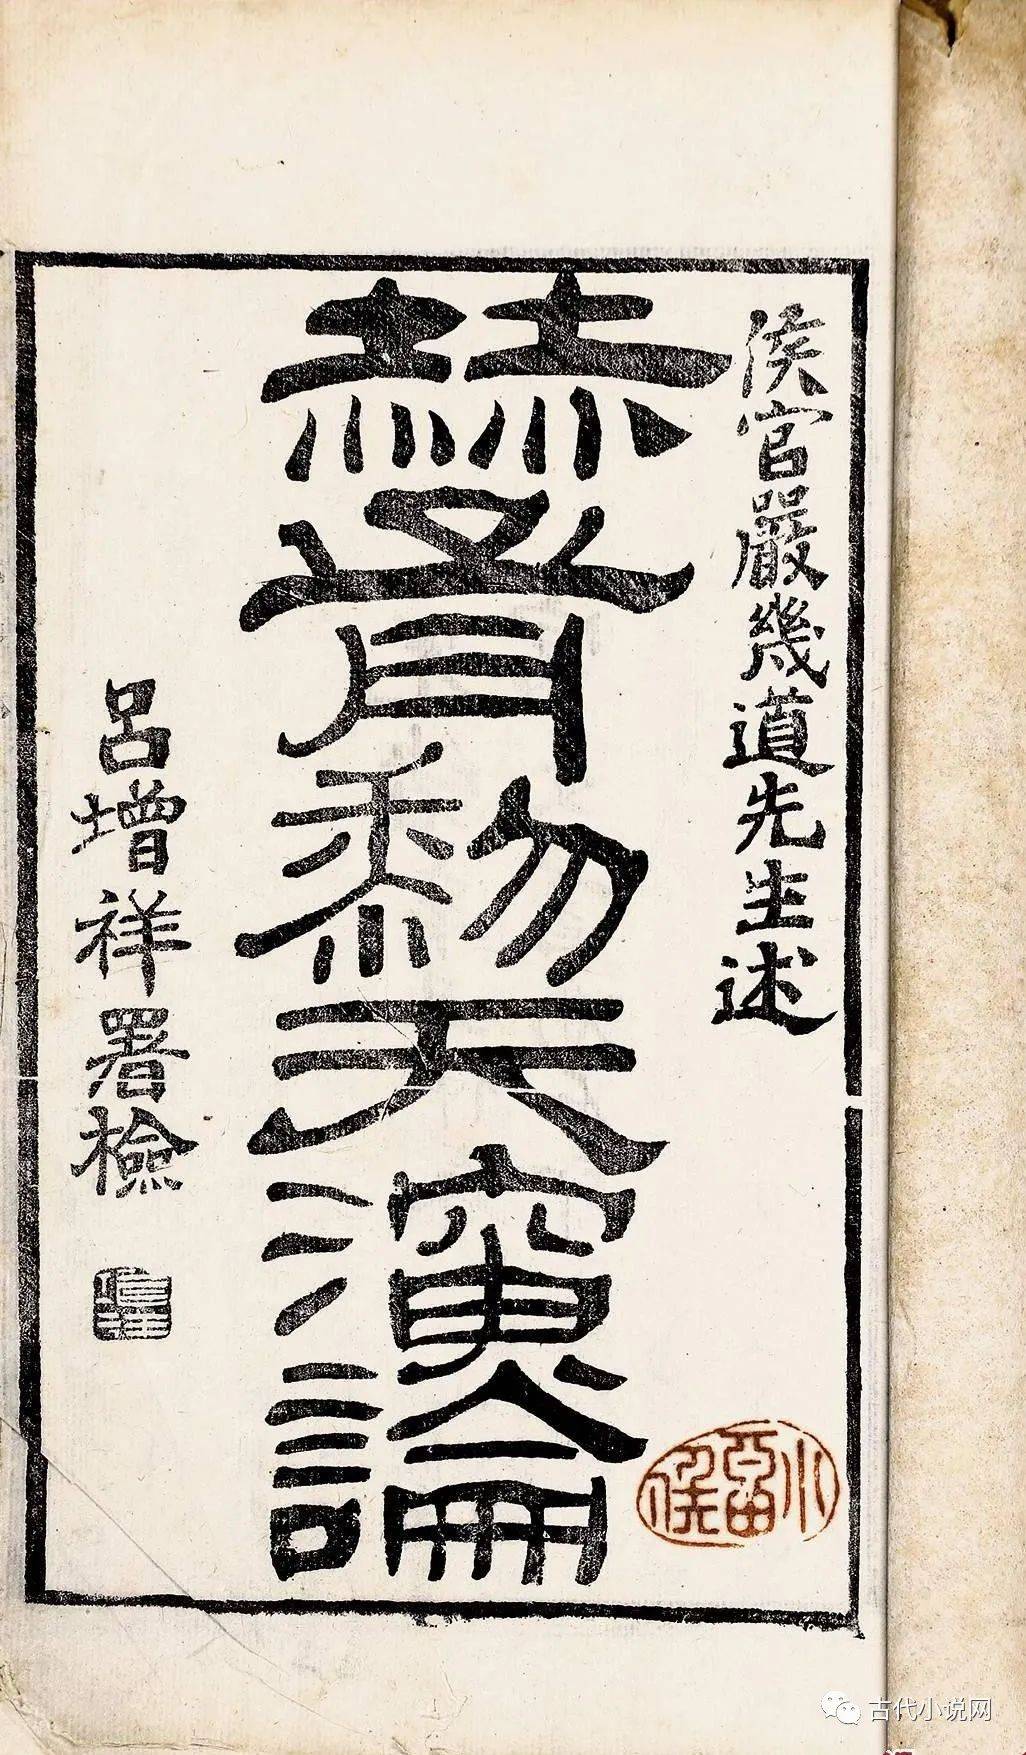 侯官嚴幾道先生述
赫胥黎天演論
呂增祥署檢
古代小说网